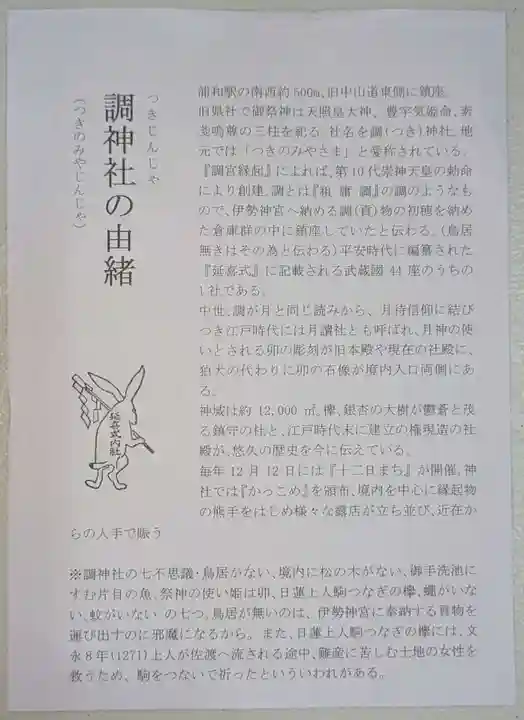 つきじんじゃ
調神社の由緒
(つきのみやじんじゃ)
浦和駅の南西約500m、旧中山道東側に鎮座。
旧県社で御祭神は天照皇大神、豊宇気姫命、素
戔嗚尊の三柱を祀る 社名を調(つき)神社、地
元では「つきのみやさま」と愛称されている。
『調宮縁起』によれば、第10代崇神天皇の勅命
により創建、調とは『租 庸 調』の調のようなも
ので、伊勢神宮へ納める調(貢)物の初穂を納め
た倉庫群の中に鎮座していたと伝わる。(鳥居
無きはその為と伝わる)平安時代に編纂された
『延喜式』に記載される武蔵國44座のうちの
1社である。
中世、調が月と同じ読みから、月待信仰に結び
つき江戸時代には月讀社とも呼ばれ、月神の使
いとされる卯の彫刻が旧本殿や現在の社殿に、
狛犬の代わりに卯の石像が境内入口両側にあ
る。
神域は約12,000㎡、欅、銀杏の大樹が鬱蒼と茂
る鎮守の杜と、江戸時代末に建立の権現造の社
殿が、悠久の歴史を今に伝えている。
毎年12月12日には『十二日まち』が開催、神
社では『かっこめ』を頒布、境内を中心に縁起物
の熊手をはじめ様々な露店が立ち並び、近在か
らの人手で賑う
延喜式内社
※調神社の七不思議・鳥居がない、境内に松の木がない、御手洗池に
すむ片目の魚、祭神の使い姫は卯、日蓮上人駒つなぎの欅、蠅がいな
い、蚊がいない の七つ。鳥居が無いのは、伊勢神宮に奉納する貢物を
運び出すのに邪魔になるから。また、日蓮上人駒つなぎの欅には、文
永8年(1271)上人が佐渡へ流される途中、難産に苦しむ土地の女性を
救うため、駒をつないで祈ったといういわれがある。